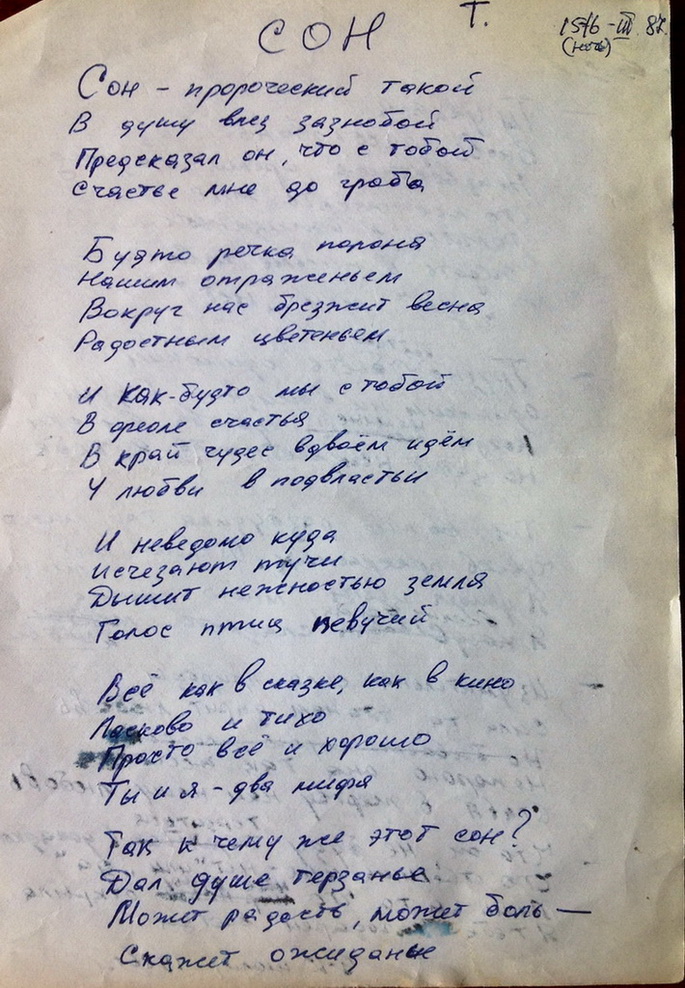 СОН Т.
15/16-III 87.
(ночь)
Сон - пророческий такой
В душу влез зазнобой
Предсказал он, что с тобой
Счастье мне до гроба
Будто речка полона
Нашим отраженьем
Вокруг нас брезжит весна
Радостным цветеньем
И как-будто мы с тобой
В ореоле счастья
В край чудес вдвоём идём
У любви в подвластьи
И неведомо куда
Исчезают тучи
Дышит нежностью земля
Голос птиц певучий
Всё как в сказке, как в кино
Ласково и тихо
Просто всё и хорошо
Ты и я - два мифа
Так к чему же этот сон?
Дал душе терзанье
Может радость, может боль —
Скажет ожиданье